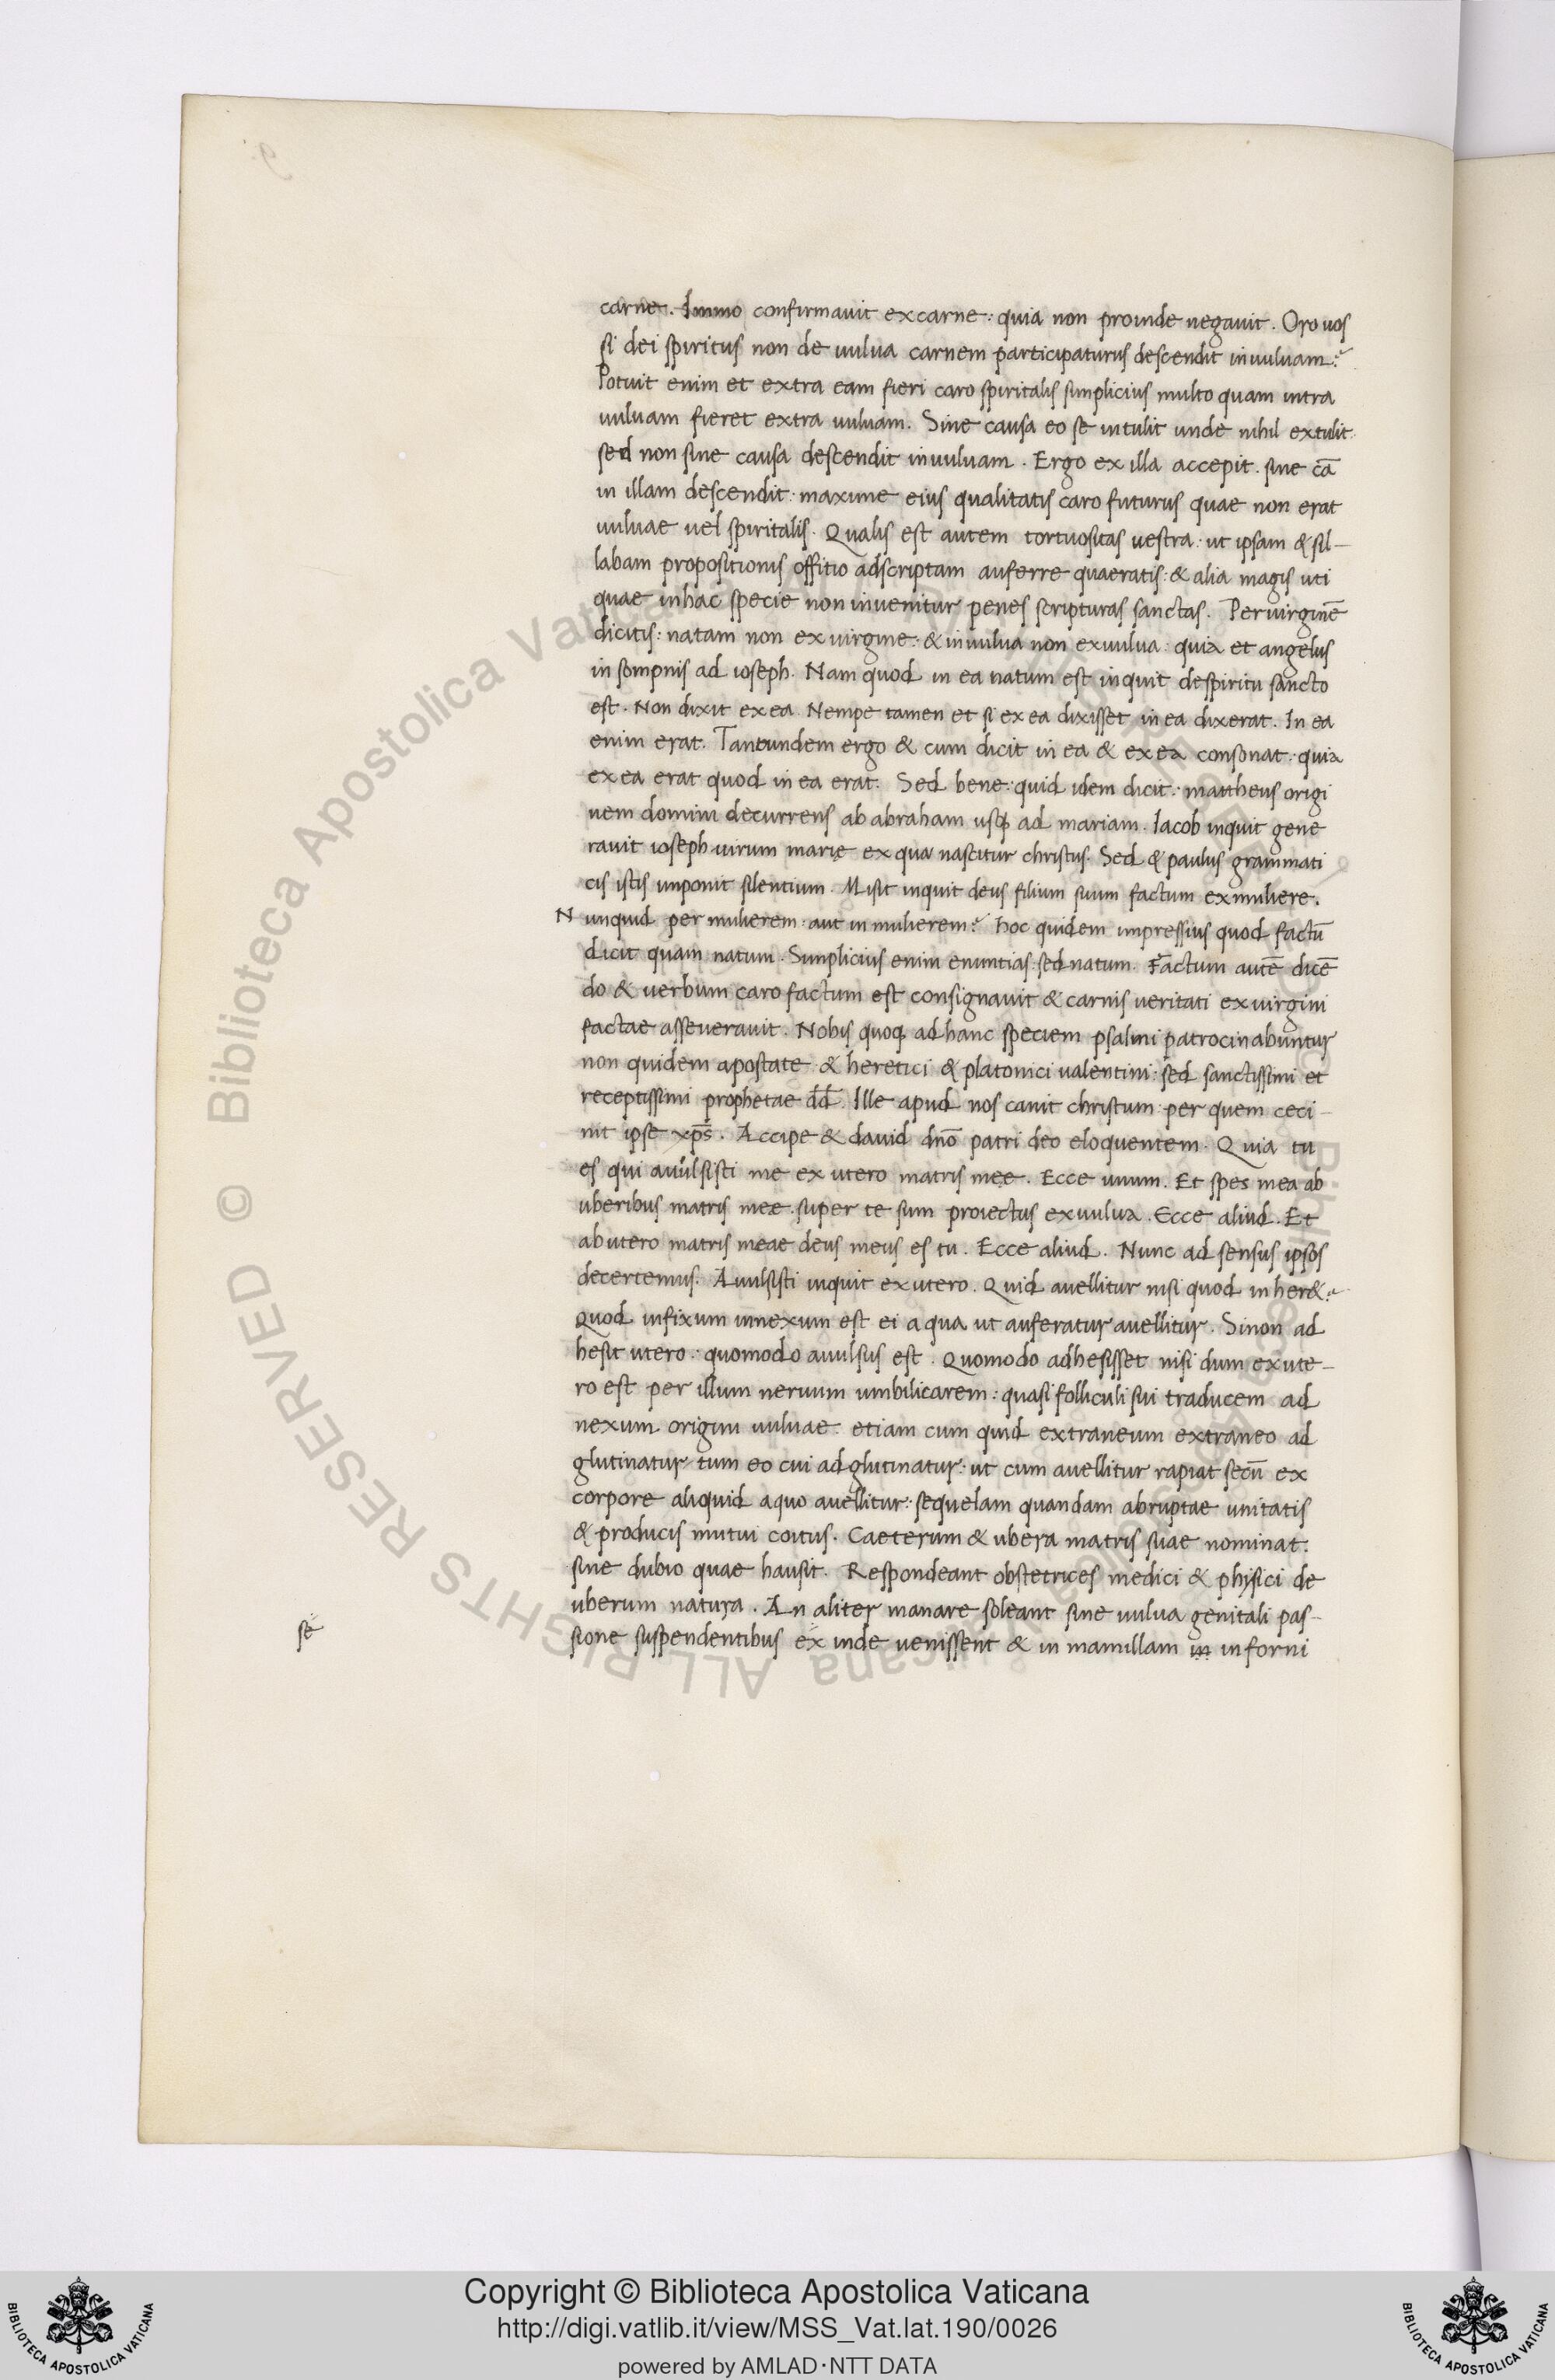 carne. Immo confirmauit ex carne: quia non proinde negauit. Oro uos
si dei spiritus non de uulua carnem participaturus descendit in uuluam?
Potuit enim et extra eam fieri caro spiritalis simplicius multo quam intra
uuluam fieret extra uuluam. Sine causa eo se intulit unde nihil extulit.
sed non sine causa descendit in uuluam. Ergo ex illa accepit. sine cā
in illam descendit: maxime eius qualitatis caro futurus quae non erat
uuluae uel spiritalis. Qualis est autem tortuositas uestra: ut ipsam & sil-
labam propositionis offitio adscriptam auferre quaeratis: & alia magis uti
quae in hac specie non inuenitur penes scripturas sanctas. Per uirginē
dicitis: natam non ex uirgine: & in uulua non ex uulua: quia et angelus
in sompnis ad ioseph. Nam quod in ea natum est inquit de spiritu sancto
est. Non dixit ex ea. Nempe tamen et si ex ea dixisset in ea dixerat. In ea
enim erat. Tantundem ergo & cum dicit in ea & ex ea consonat: quia
ex ea erat quod in ea erat. Sed bene: quid idem dicit: mattheus origi
nem domini decurrens ab abraham usq; ad mariam. Iacob inquit gene
rauit ioseph uirum marię ex qua nascitur christus. Sed & paulus grammati
cis istis imponit silentium. Misit inquit deus filium suum factum ex muliere.
Nunquid per mulierem aut in mulierem? hoc quidem impressius quod factū
dicit quam natum. Simplicius enim enuntias: sed natum. Factum autē dicē
do & uerbum caro factum est consignauit & carnis ueritati ex uirgini
factae asseuerauit. Nobis quoq; ad hanc speciem psalmi patrocinabuntur
non quidem apostate & heretici & platonici ualentini: sed sanctissimi et
receptissimi prophetae dd. Ille apud nos canit christum per quem ceci-
nit ipse xp̄s. Accipe & dauid dn̄o patri deo eloquentem. Quia tu
es qui auulsisti me ex utero matris męe. Ecce unum. Et spes mea ab
uberibus matris meæ super te sum proiectus ex uulua. Ecce aliud. Et
ab utero matris meae deus meus es tu. Ecce aliud. Nunc ad sensus ipsos
decertemus. Auulsisti inquit ex utero. Quid auellitur nisi quod inher&?
Quod infixum innexum est ei a qua ut auferatur auellitur. Si non ad
hesit utero: quomodo auulsus est. Quomodo adhesisset nisi dum ex ute-
ro est per illum neruum umbilicarem: quasi folliculi sui traducem ad
nexum origini uuluae. etiam cum quid extraneum extraneo ad
glutinatur tum eo cui adglutinatur: ut cum auellitur rapiat secū ex
corpore aliquid a quo auellitur: sequelam quandam abruptae unitatis
& producis mutui coitus. Caeterum & ubera matris suae nominat.
sine dubio quae hausit. Respondeant obstetrices medici & phisici de
uberum natura. An aliter manare soleant sine uulua genitali pas-
sione suspendentibus ex inde uenissent & in mamillam in informi
sé
Copyright © Biblioteca Apostolica Vaticana
http://digi.vatlib.it/view/MSS_Vat.lat.190/0026
powered by AMLAD·NTT DATA
BIBLIOTECA APOSTOLICA VATICANA
BIBLIOTECA APOSTOLICA VATICANA
© Biblioteca Apostolica Vaticana ALL RIGHTS RESERVED